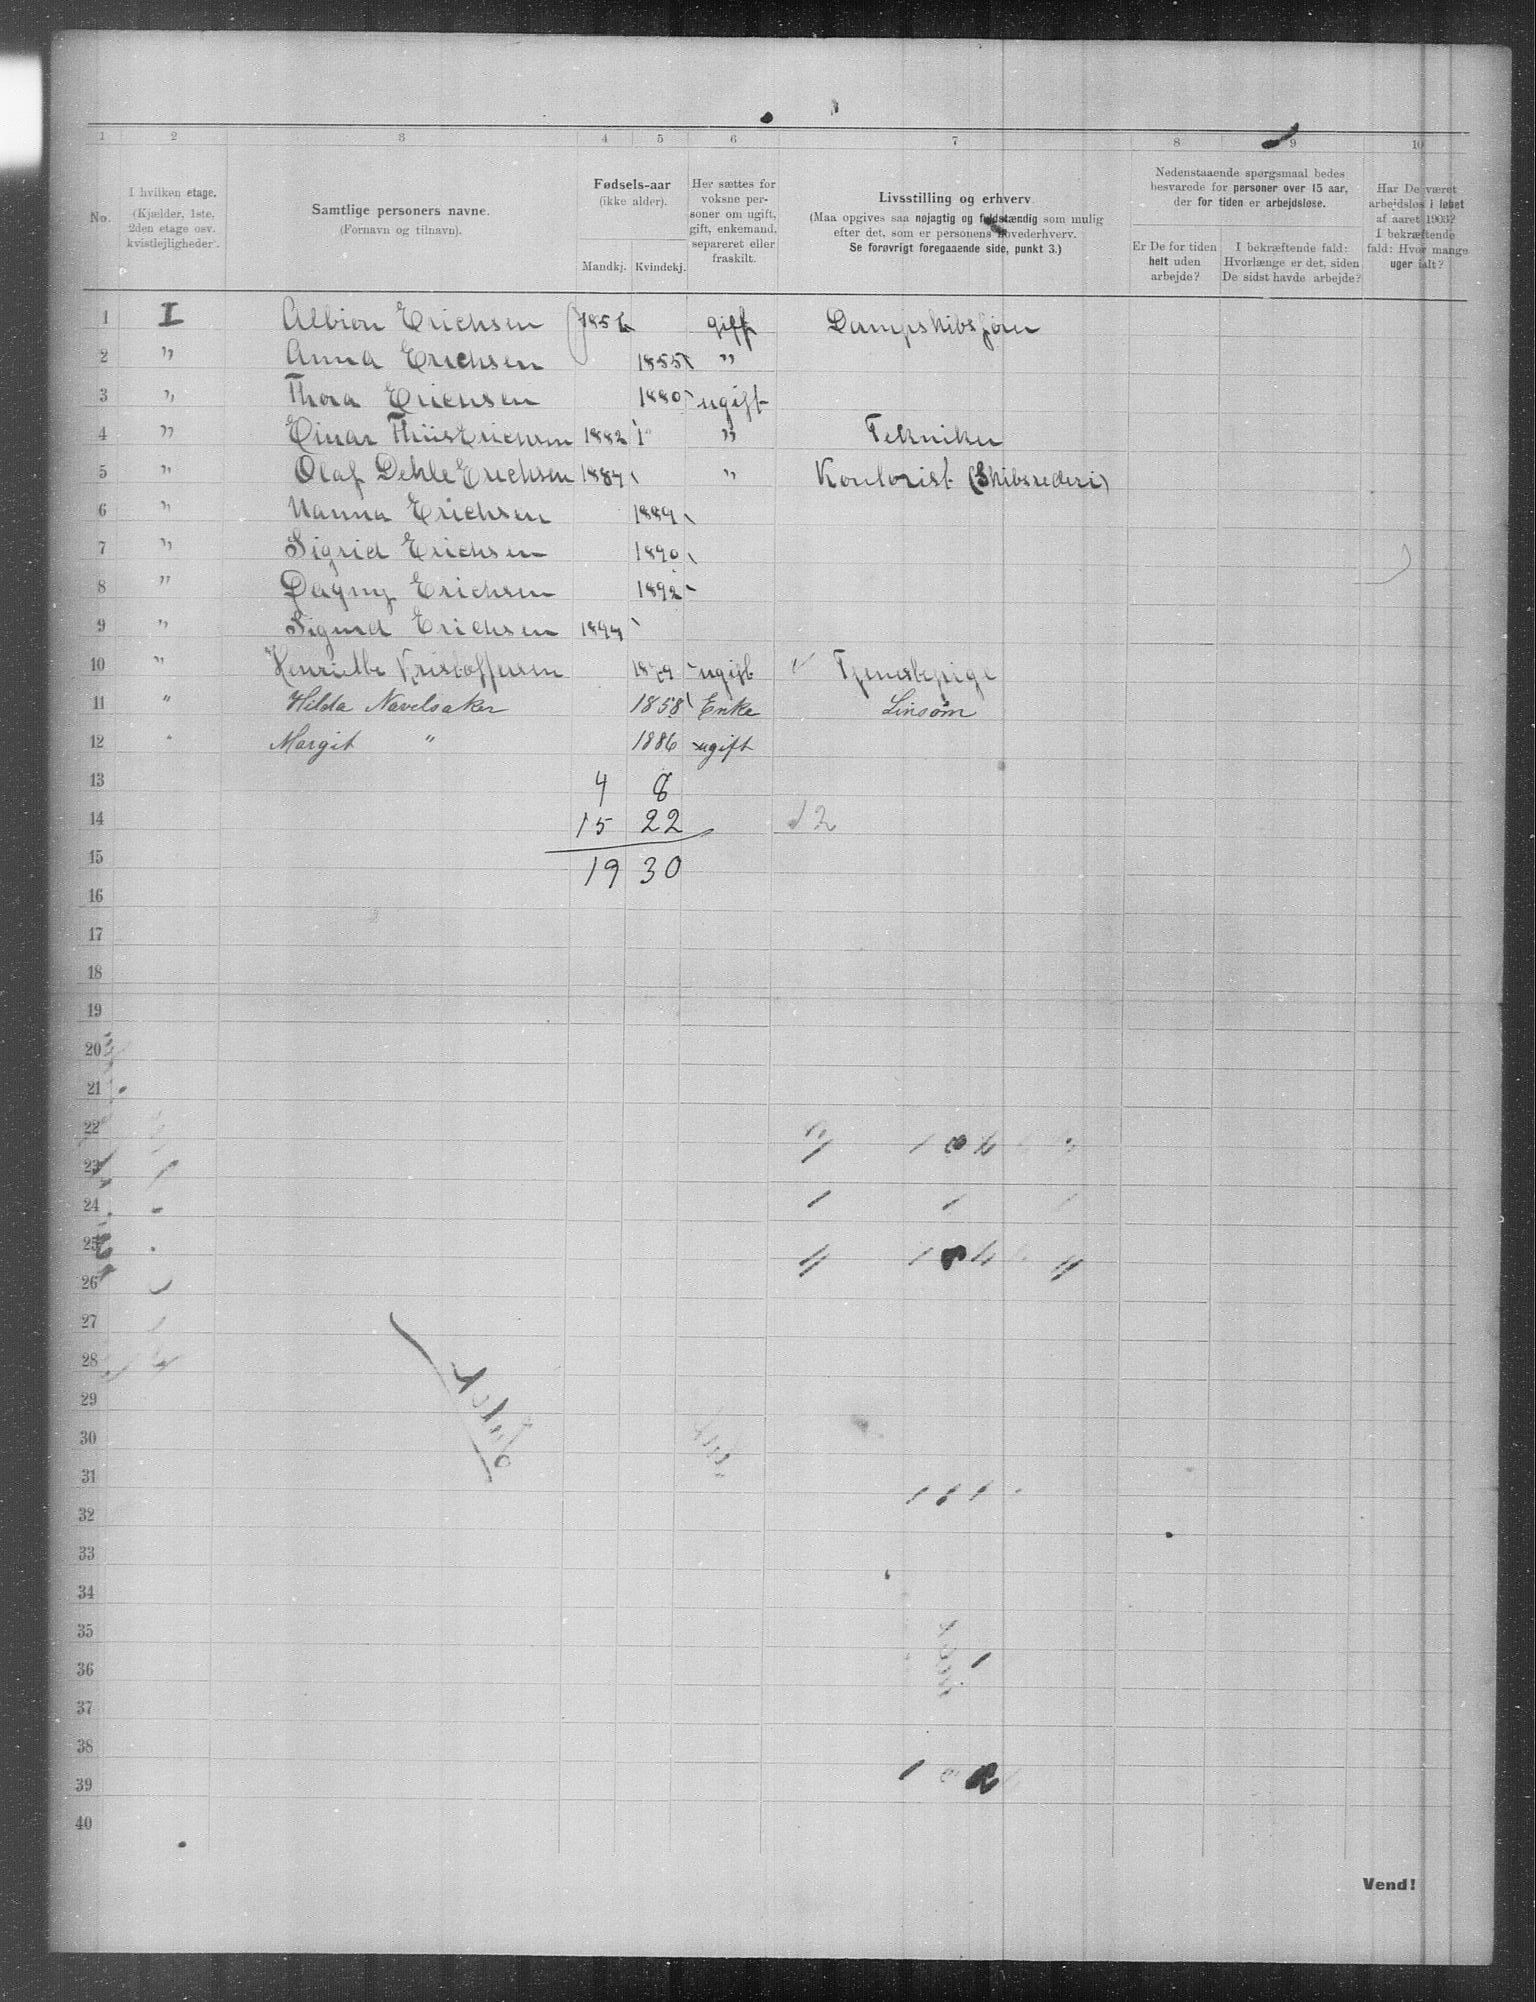 1 2 3 4 5 6 7 8 9 10
No.
I hvilken etage.
(Kjælder, 1ste, 2den etage osv. kvistlejligheder).
Samtlige personers navne.
(Fornavn og tilnavn).
Fødsels-aar
(ikke alder).
Mandkj. Kvindekj.
Her sættes for voksne personer om ugift, gift, enkemand, separeret eller fraskilt.
Livsstilling og erhverv.
(Maa opgives saa nøjagtig og fuldstændig som mulig
efter det, som er personens hovederhverv.
Se forøvrigt foregaaende side, punkt 3.)
Nedenstaaende spørgsmaal bedes
besvarede for personer over 15 aar,
der for tiden er arbejdsløse.
Er De for tiden helt uden arbejde?
I bekræftende fald: Hvorlænge er det, siden De sidst havde arbejde?
Har De været arbejdsløs i løbet af aaret 1903? I bekræftende fald: Hvor mange uger ialt?
1 I Albion Erichsen gift
2 " Anna Erichsen 1855 "
3 " Thora Erichsen 1880 ugift
4 " Einar Thiis Erichsen 1882 " Tekniker
5 " Olaf Dehle Erichsen 1884 " Kontorist (Skibsrederi)
6 " Nanna Erichsen 1889
7 " Sigrid Erichsen 1890
8 " Dagny Erichsen 1892
9 " Sigurd Erichsen 1894
10 " Henriette Kristoffersen ugift Tjenestepige
11 " Hilda Navelsaker 1858 Enke Linsøm
12 " Margit " 1886 ugift
13 4 8
14 15 22 12
15 19 30
16
17
18
19
20
21
22
23
24
25
26
27
28
29
30
31
32
33
34
35
36
37
38
39
40
Vend!